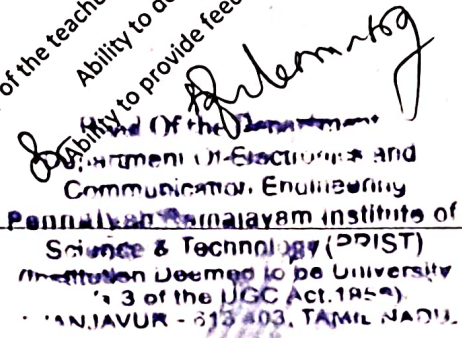 of the teache
Ability to do
Ability to provide feed
Head Of the Department
Department Of Electronics and
Communication Engineering
Ponnaiyah Ramajayam Institute of
Science & Technology (PRIST)
(Institution Deemed to be University
3 of the UGC Act.1956)
THANJAVUR - 613 403, TAMIL NADU.